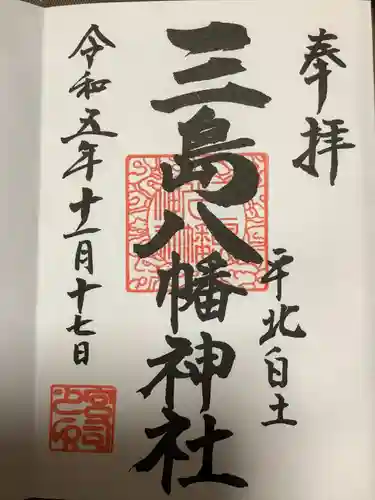 奉拝
三島八幡神社
平北白土
令和五年十一月十七日